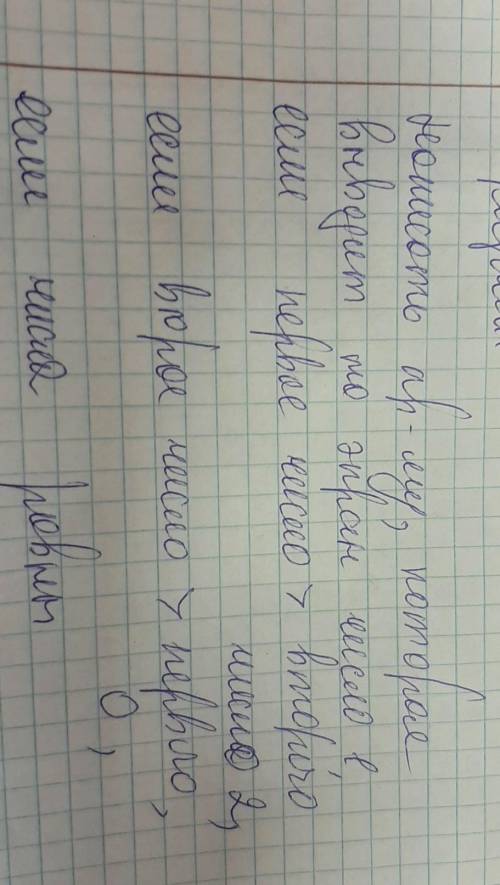 Написать пр-му, которая
выводит на экран число 1
если первое число > второго
число 2,
если второе число > первого,
0,
если числа равны